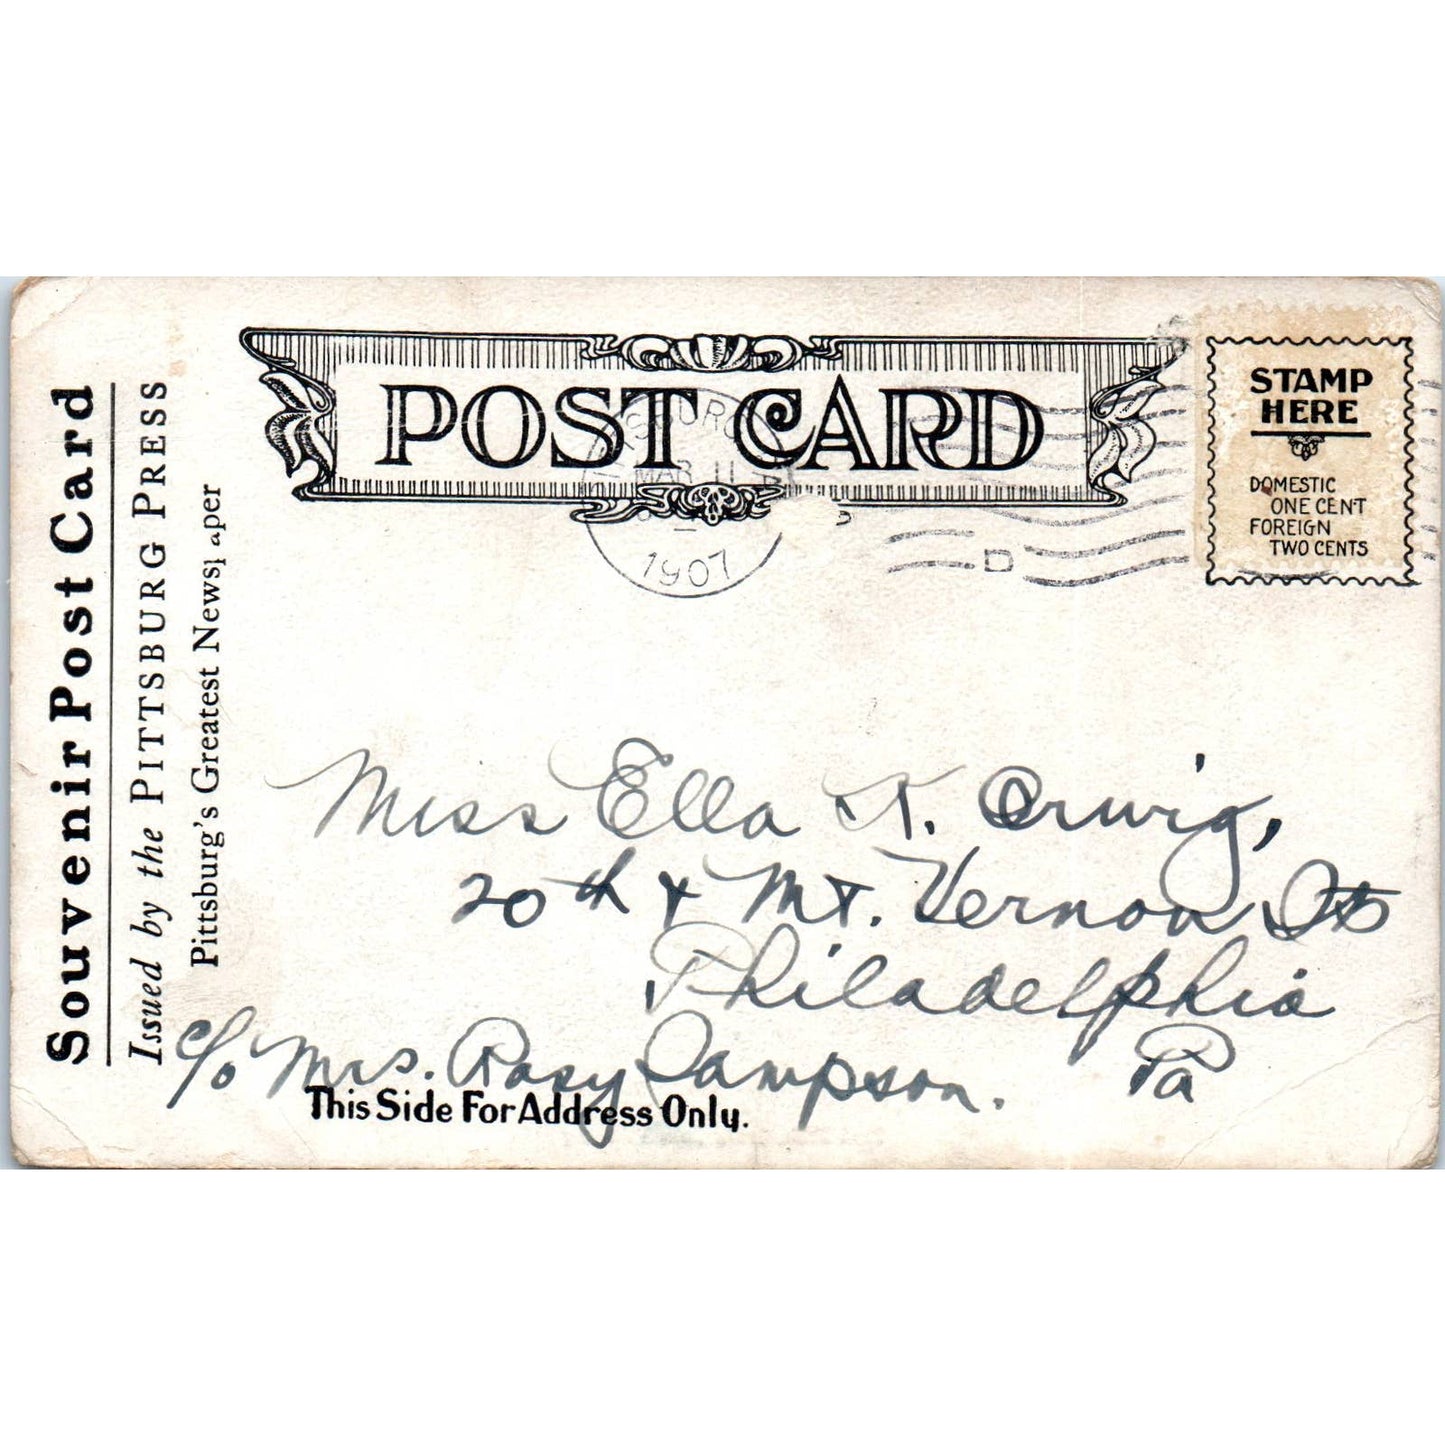 Souvenir Post Card
Issued by the PITTSBURG PRESS
Pittsburg's Greatest Newspaper
POST CARD
MAR 11
1907
D
STAMP
HERE
DOMESTIC
ONE CENT
FOREIGN
TWO CENTS
Miss Ella K. Orwig,
20th & Mt. Vernon Sts
Philadelphia
Pa
c/o Mrs. Rosy Sampson.
This Side For Address Only.